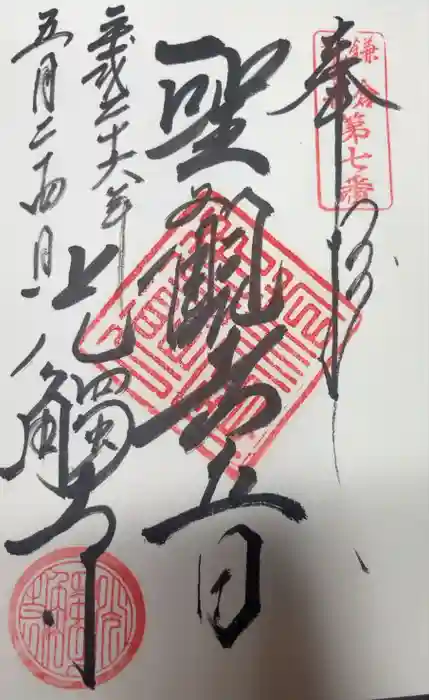 鎌倉第七番
奉拝
聖觀世音
平成二十六年
五月二十四日
光觸寺